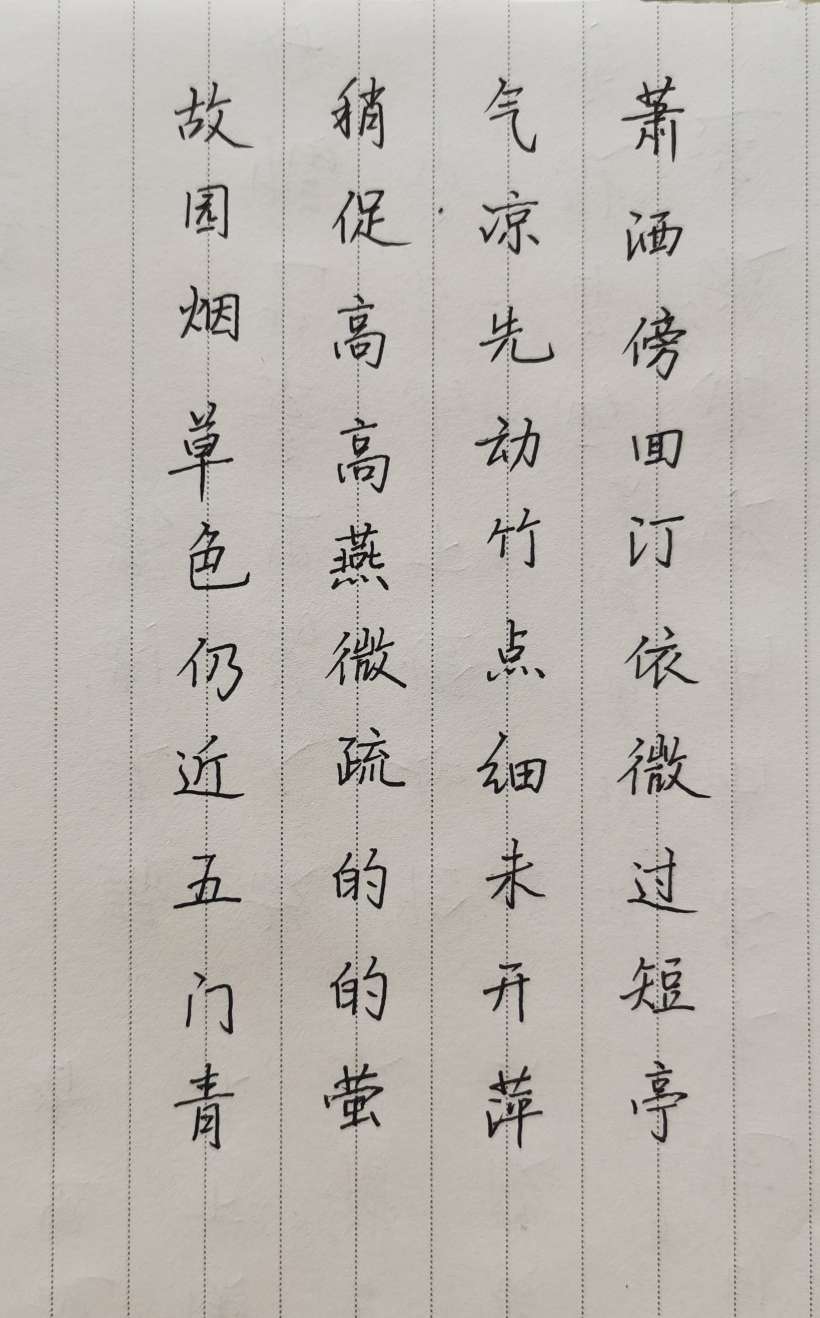 萧洒傍回汀依微过短亭
气凉先动竹点细未开萍
稍促高高燕微疏的的萤
故园烟草色仍近五门青